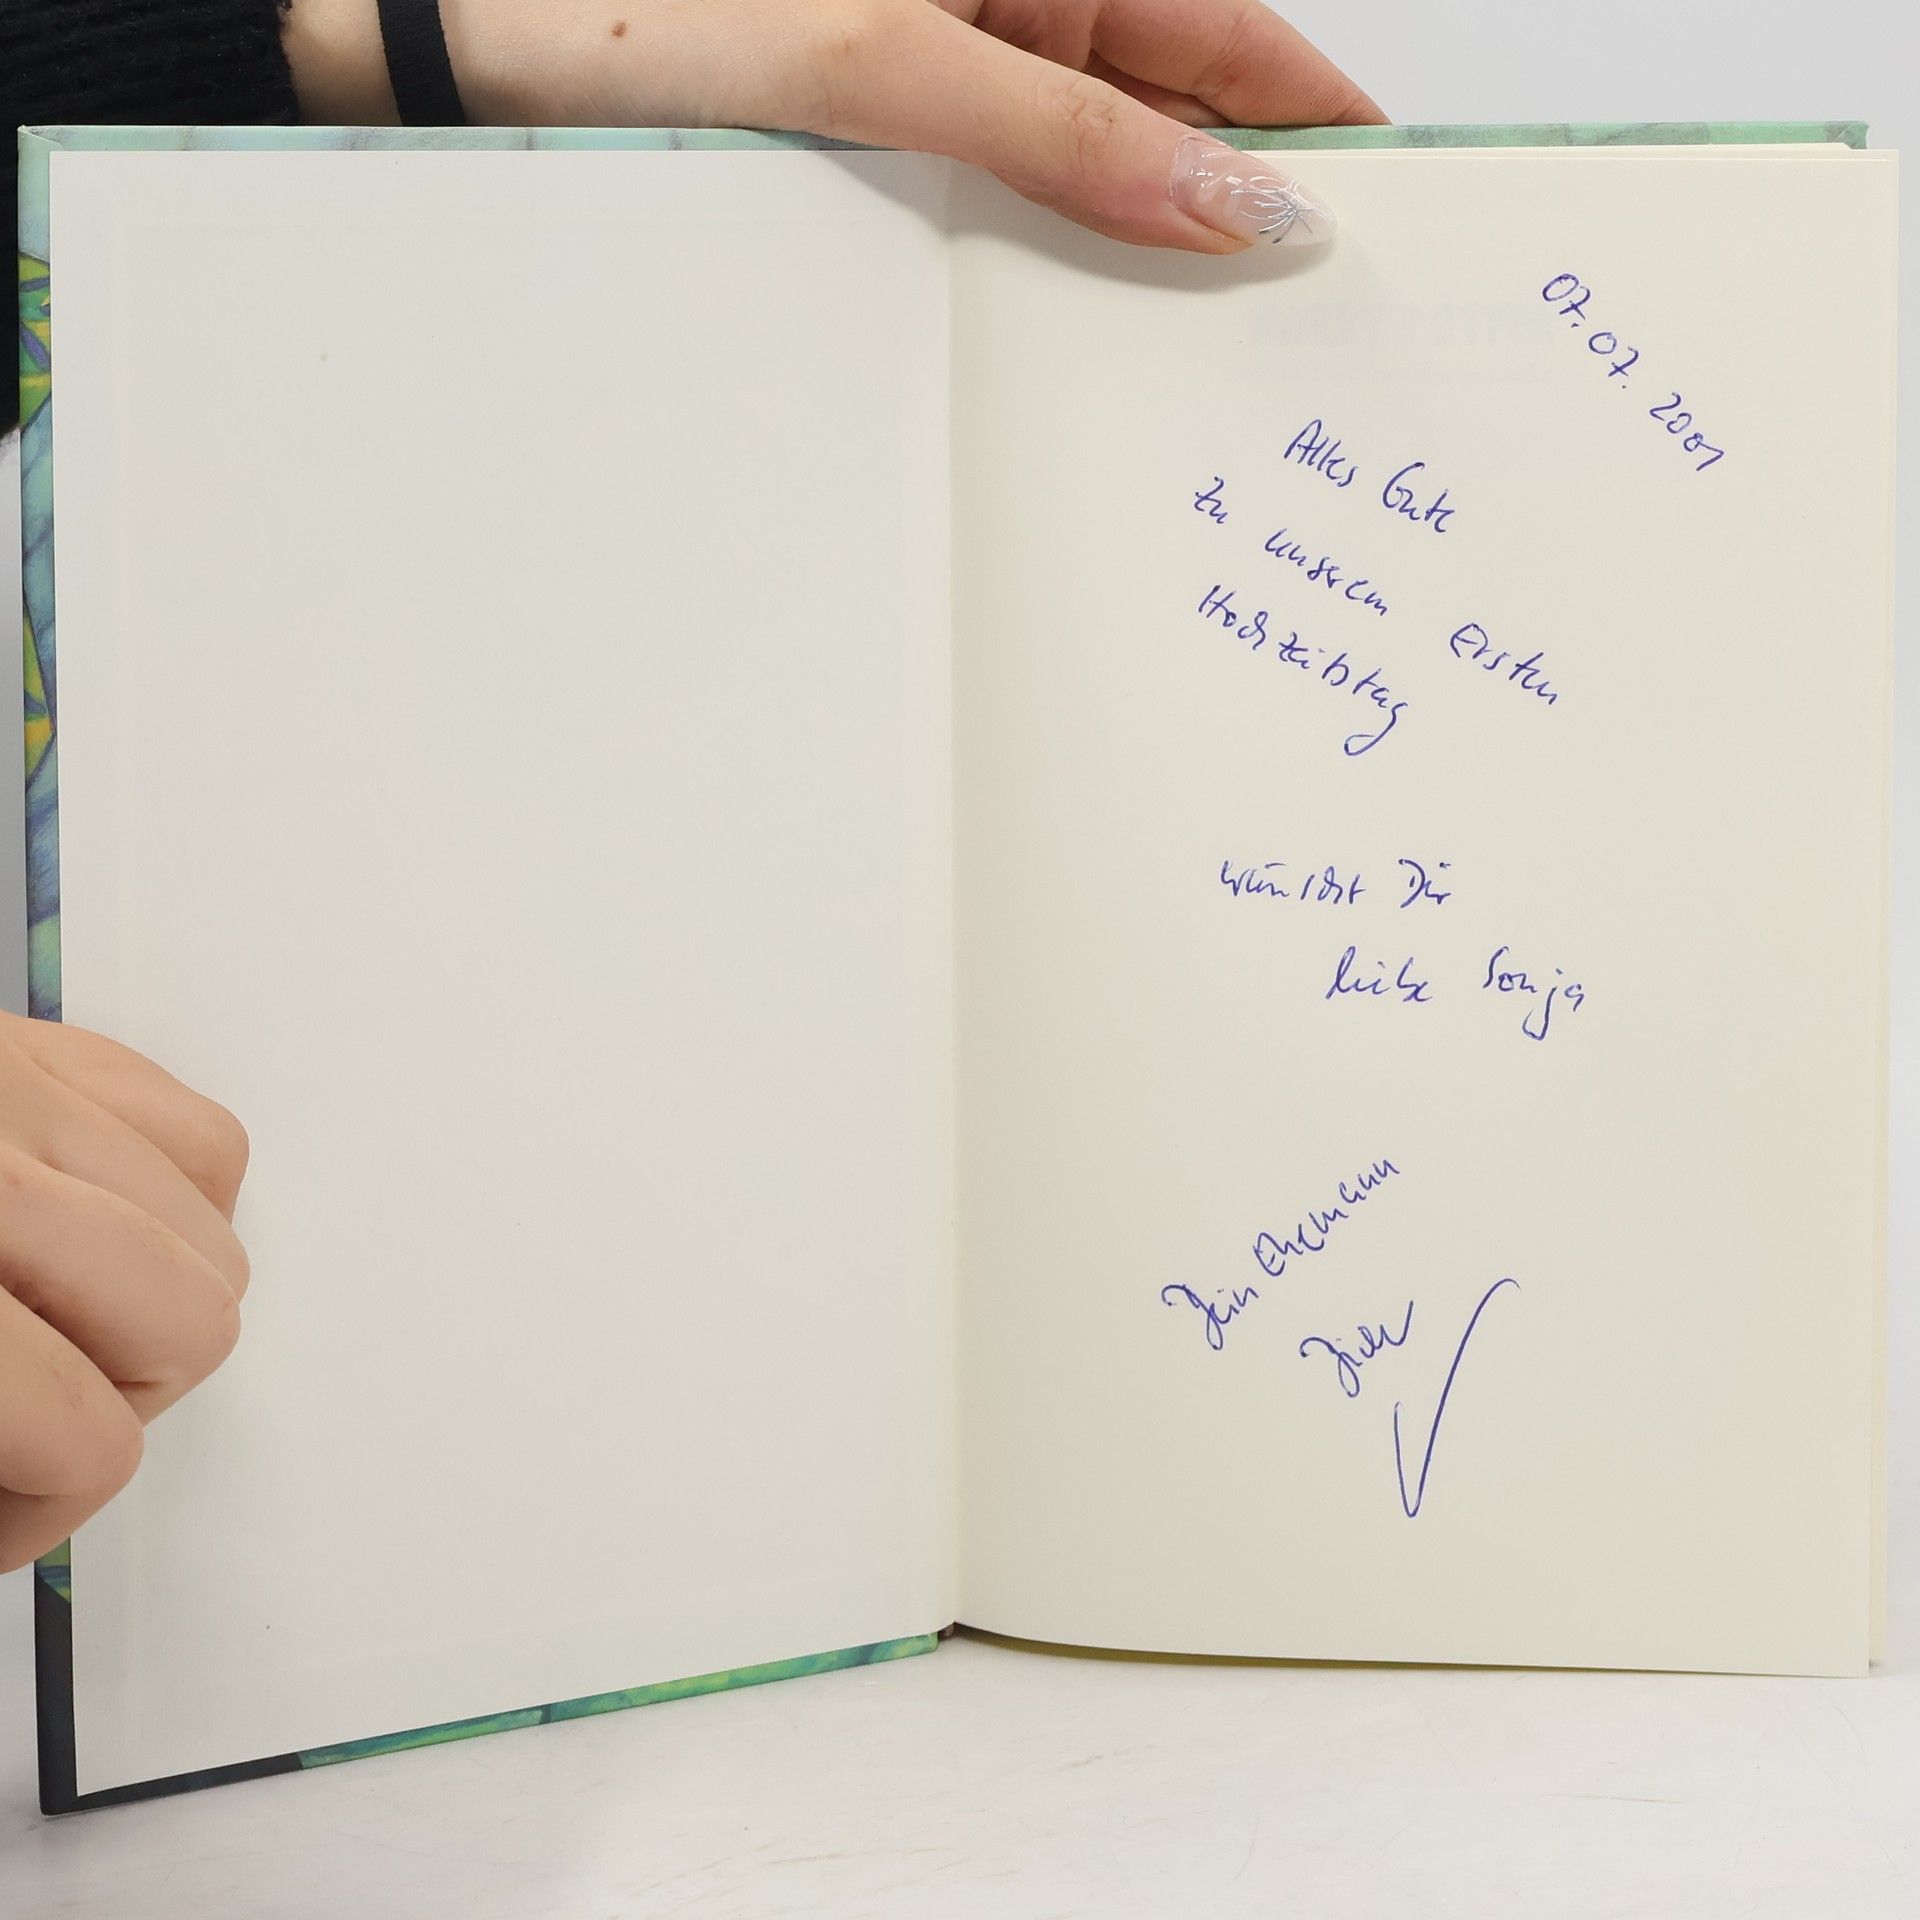 07.07.2001
Alles Gute
zu unserem Ersten
Hochzeitstag
wünscht Dir
liebe Sonja
Dein Ehemann